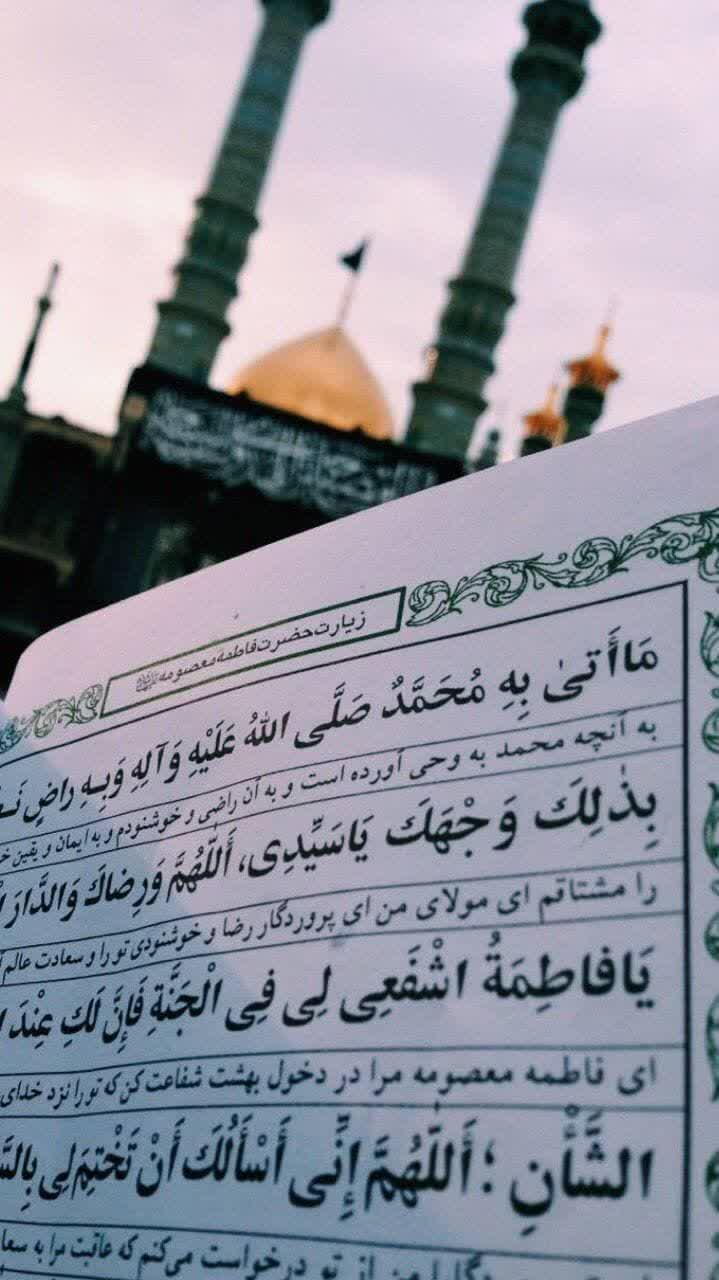 زیارت حضرت فاطمه معصومه
مَاأَتىٰ بِهِ مُحَمَّدٌ صَلَّى اللهُ عَلَيْهِ وَآلِهِ وَبِهِ راضٍ
به آنچه محمد به وحی آورده است و به آن راضی و خوشنودم و به ایمان و یقین
بِذٰلِكَ وَجْهَكَ يَاسَيِّدِى، أَللّٰهُمَّ وَرِضاكَ وَالدَّارَ
را مشتاقم ای مولای من ای پروردگار رضا و خوشنودی تو را و سعادت عالم
يَافاطِمَةُ اشْفَعِى لِى فِى الْجَنَّةِ فَإِنَّ لَكِ عِنْدَ
ای فاطمه معصومه مرا در دخول بهشت شفاعت کن که تو را نزد خدای
الشَّأْنِ ؛ أَللّٰهُمَّ إِنِّى أَسْأَلُكَ أَنْ تَخْتِمَ لِى
من از تو درخواست می‌کنم که عاقبت مرا به